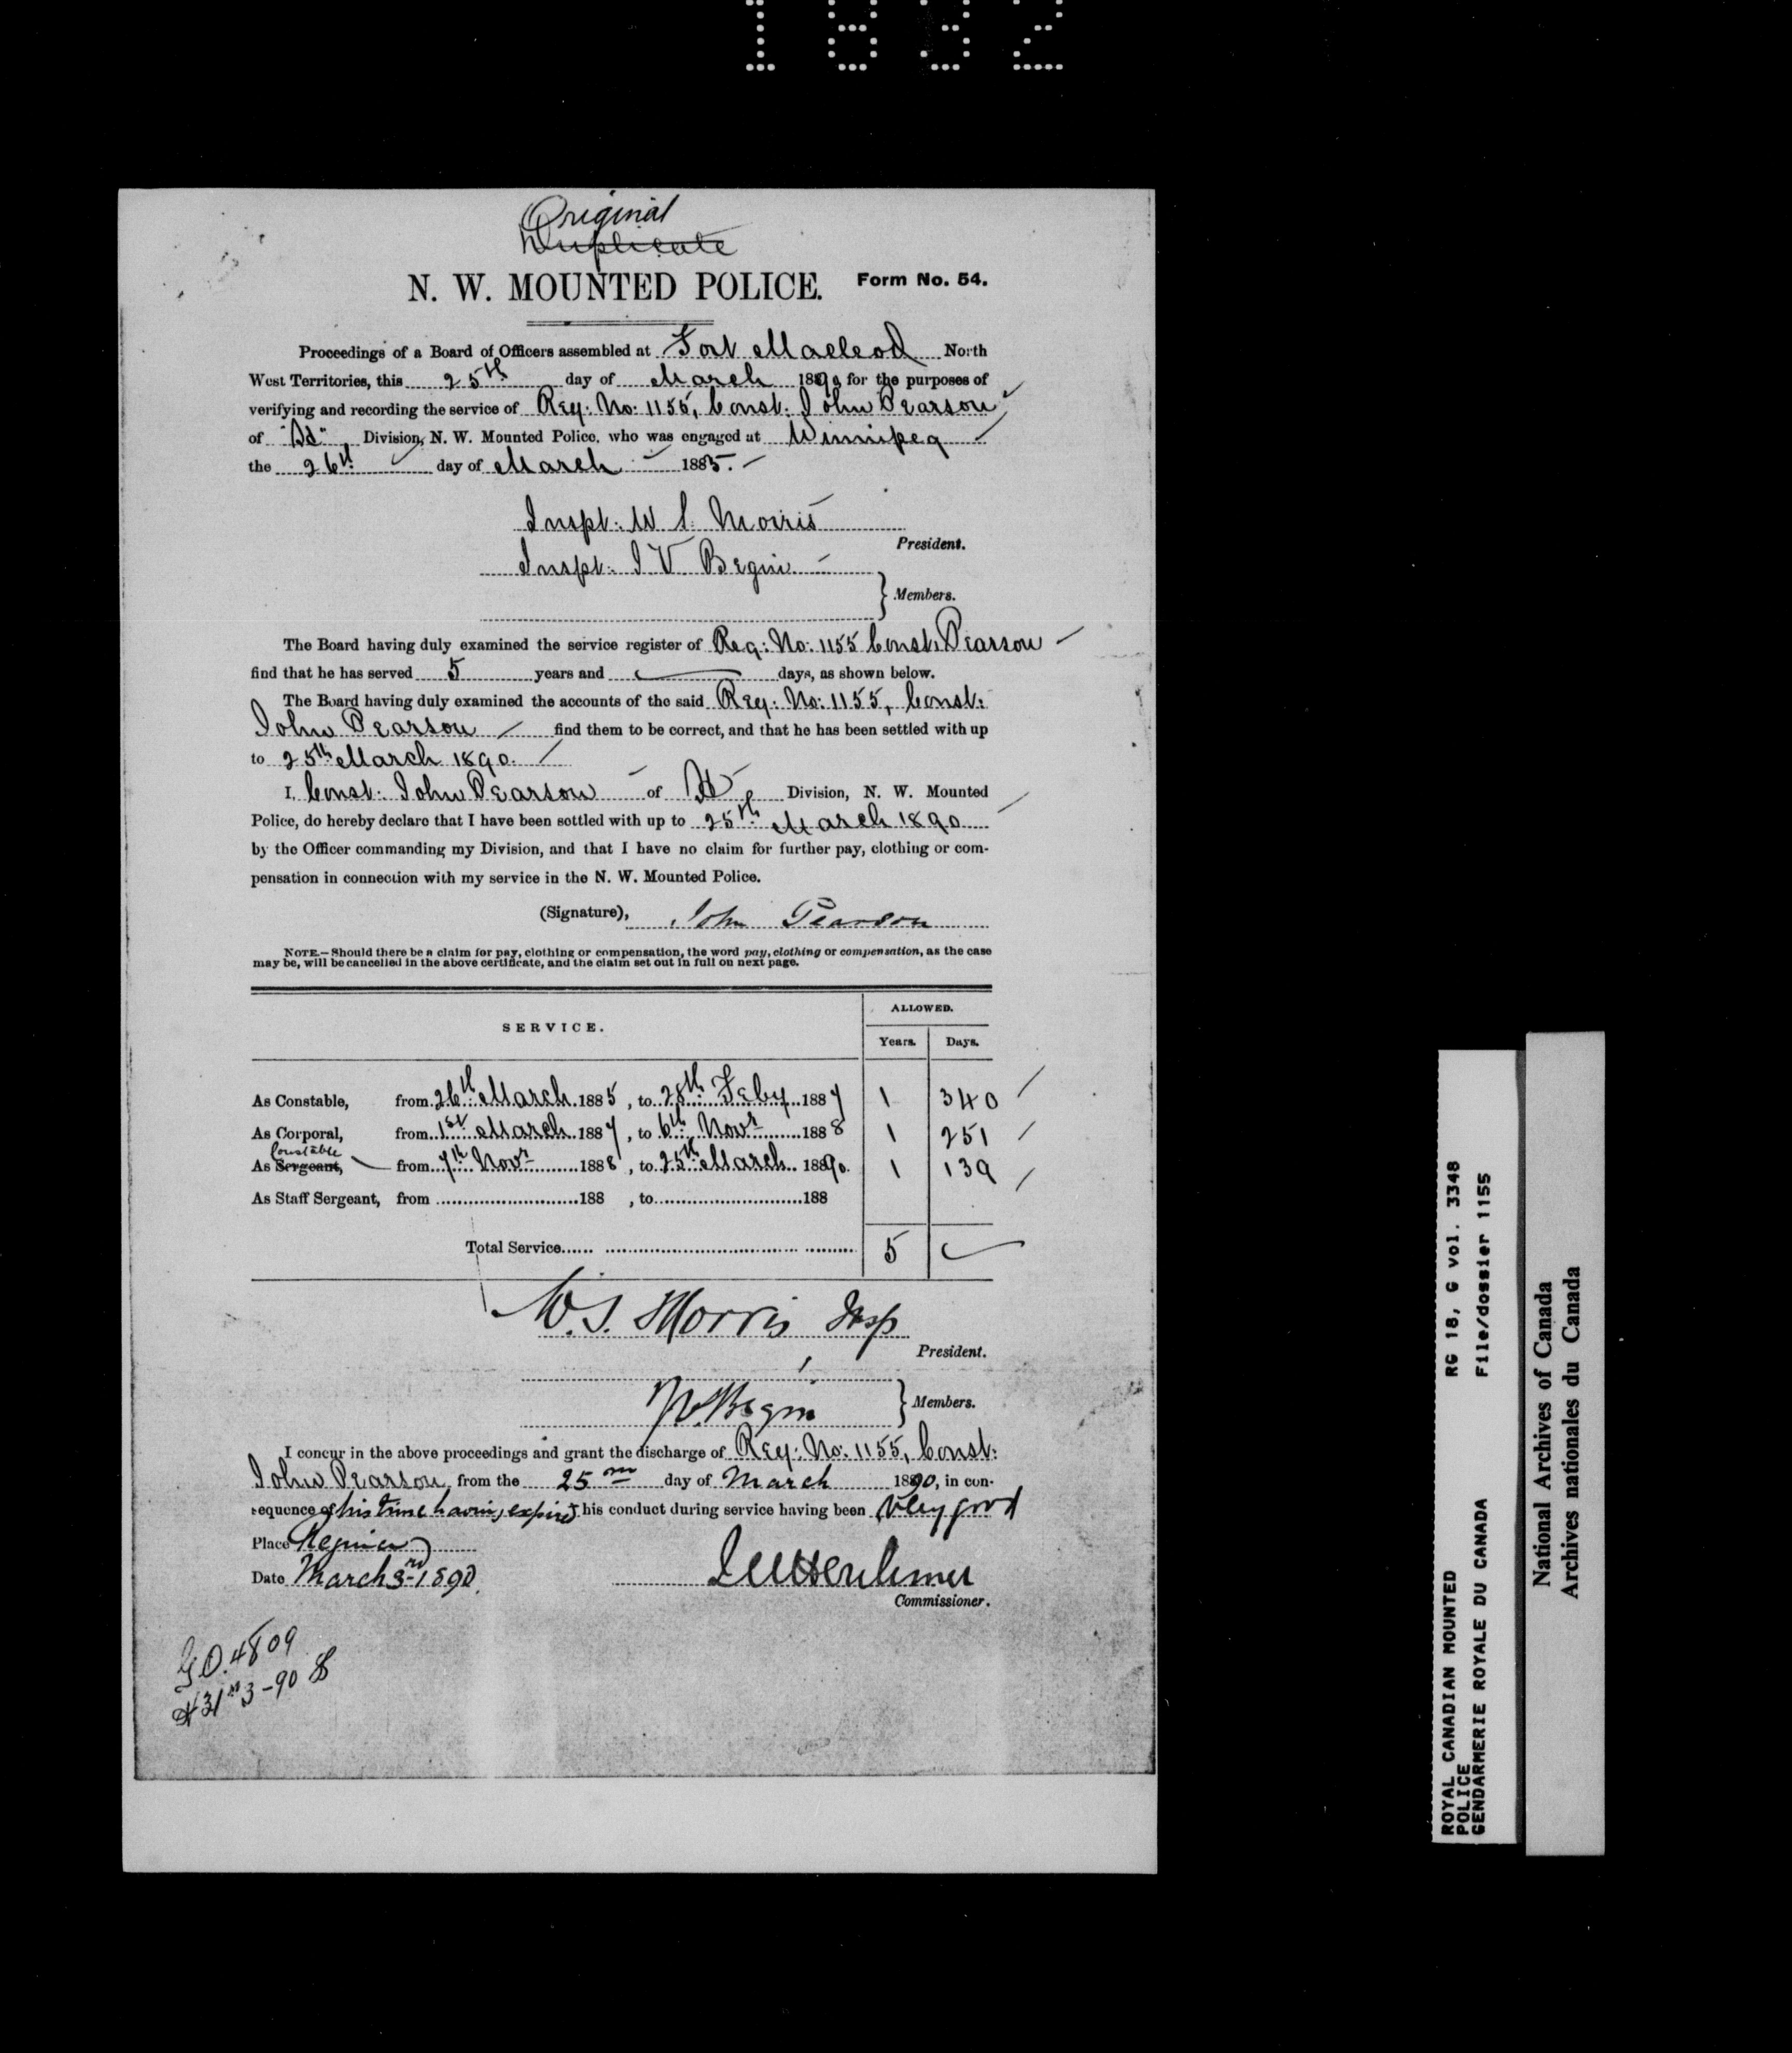 1832
Original
Duplicate
N. W. MOUNTED POLICE. Form No. 54.
Proceedings of a Board of Officers assembled at Fort Macleod North
West Territories, this 25th day of March 1890, for the purposes of
verifying and recording the service of Reg: No: 1155, Const: John Pearson
of "H" Division, N. W. Mounted Police, who was engaged at Winnipeg
the 26th day of March 1885.
Inspt: W S Morris
President.
Inspt: J V Begin
Members.
The Board having duly examined the service register of Reg: No: 1155 Const: Pearson
find that he has served 5 years and days, as shown below.
The Board having duly examined the accounts of the said Reg: No: 1155, Const:
John Pearson find them to be correct, and that he has been settled with up
to 25th March 1890.
I, Const: John Pearson of H Division, N. W. Mounted
Police, do hereby declare that I have been settled with up to 25th March 1890
by the Officer commanding my Division, and that I have no claim for further pay, clothing or com-
pensation in connection with my service in the N. W. Mounted Police.
(Signature), John Pearson
NOTE.—Should there be a claim for pay, clothing or compensation, the word pay, clothing or compensation, as the case
may be, will be cancelled in the above certificate, and the claim set out in full on next page.
SERVICE. ALLOWED.
Years. Days.
As Constable, from 26th March 1885, to 28th Feby 1887 1 340
As Corporal, from 1st March 1887, to 6th Novr 1888 1 251
Constable
As Sergeant, from 7th Novr 1888, to 25th March 1890. 1 139
As Staff Sergeant, from 188 , to 188
Total Service 5
W. S. Morris, Insp
President.
JVBegin
Members.
I concur in the above proceedings and grant the discharge of Reg: No: 1155, Const:
John Pearson, from the 25th day of March 1890, in con-
sequence of his time having expired his conduct during service having been very good
Place Regina
Date March 3rd 1890
Commissioner.
G.O. 4809
31st 3-90
ROYAL CANADIAN MOUNTED RG 18, G vol. 3348
POLICE
GENDARMERIE ROYALE DU CANADA File/dossier 1155
National Archives of Canada
Archives nationales du Canada